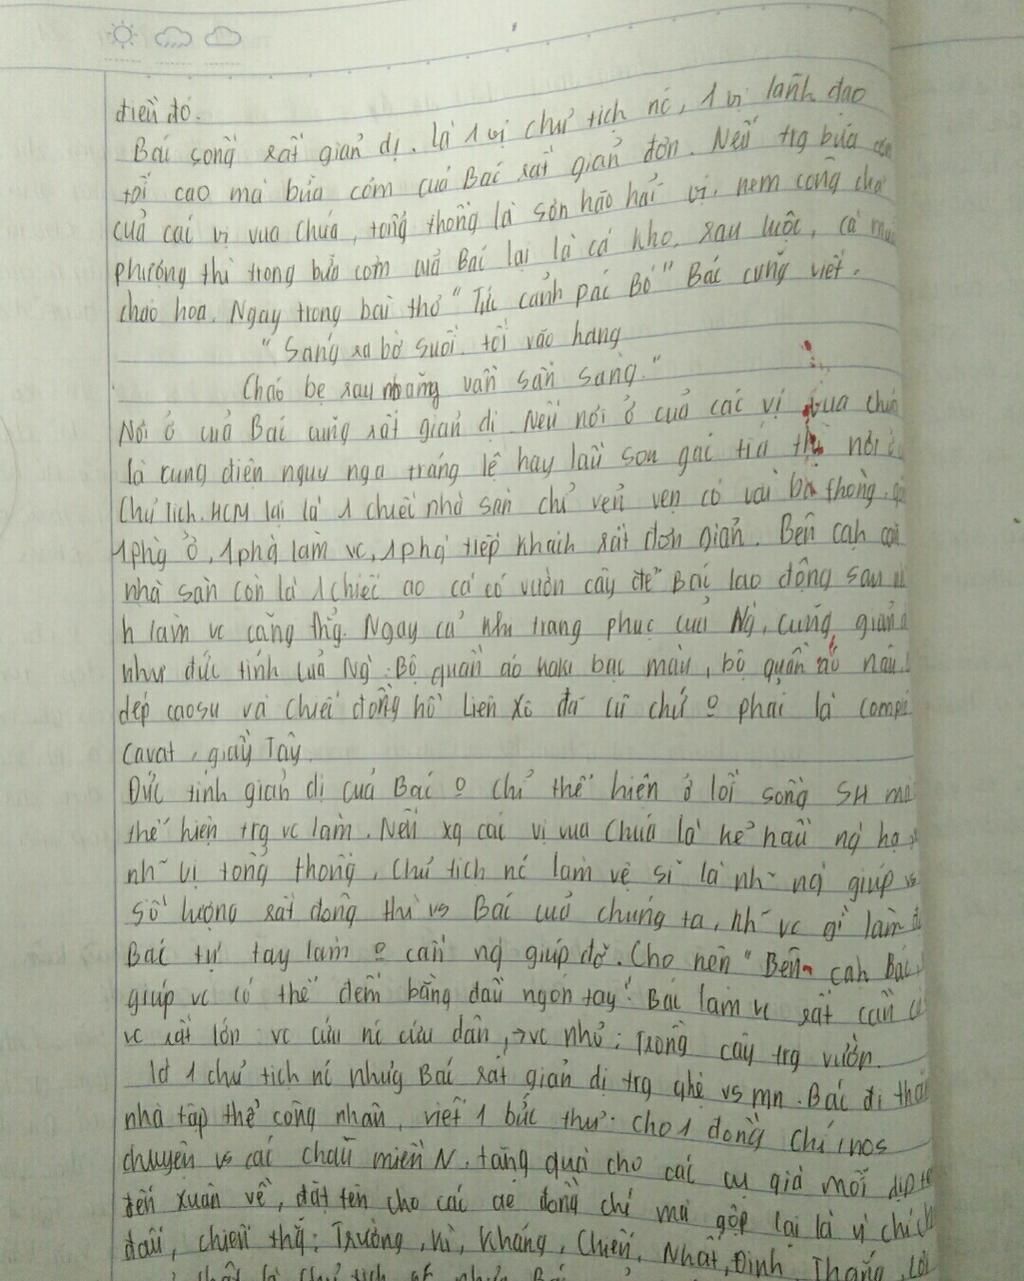 điều đó.
Bác sống rất giản dị. Là 1 vị chủ tịch nc, 1 vị lãnh đạo
tối cao mà bữa cơm của Bác rất giản đơn. Nếu trg bữa cơm
của các vị vua chúa, tổng thống là sơn hào hải vị, nem công chả
phượng thì trong bữa cơm của Bác lại là cá kho, rau luộc, cà muối
cháo hoa. Ngay trong bài thơ "Tức cảnh Pác Bó" Bác cũng viết.
"Sáng ra bờ suối, tối vào hang
Cháo bẹ rau măng vẫn sẵn sàng."
Nơi ở của Bác cũng rất giản dị. Nếu nơi ở của các vị vua chúa
là cung điện nguy nga tráng lệ hay lầu son gác tía thì nơi ở
Chủ tịch. HCM lại là 1 chiếc nhà sàn chỉ vẻn vẹn có vài ba phòng.
1 phg ở, 1 phg làm vc, 1 phg tiếp khách rất đơn giản. Bên cạh
nhà sàn còn là 1 chiếc ao cá có vườn cây để Bác lao động sau
h làm vc căng thg. Ngay cả như trang phục của Ng, cũng giản
như đức tính của Ng. Bộ quần áo kaki bạc màu, bộ quần áo nâu
dép caosu và chiếc đồng hồ Liên Xô đã cũ chứ o phải là comple
cavat, giày Tây.
Đức tính giản dị của Bác o chỉ thể hiện ở lối sống SH mà
thể hiện trg vc làm. Nếu xq các vị vua chúa là kẻ hầu ng hạ
nh~ vị tổng thống, chủ tịch nc làm vệ sĩ là nh~ ng giúp vs
số lượng rất đông thì vs Bác của chúng ta, nh~ vc gì làm đc
Bác tự tay làm o cần ng giúp đỡ. Cho nên "Bên cạh Bác
giúp vc có thể đếm bằng đầu ngón tay". Bác làm vc rất cần
vc rất lớn: vc cứu nc cứu dân, → vc nhỏ: Trồng cây trg vườn.
Là 1 chủ tịch nc nhưg Bác rất giản dị trg qhệ vs mn. Bác đi thăm
nhà tập thể công nhân, viết 1 bức thư cho 1 đồng chí, nói
chuyện vs các cháu miền N, tặng quà cho các cụ già mỗi dịp tết
đến xuân về, đặt tên cho các ae đồng chí mà gộp lại là ý chí
đấu, chiến thg: Trường, Kì, Kháng, Chiến, Nhất, Định, Thắng, Lợi